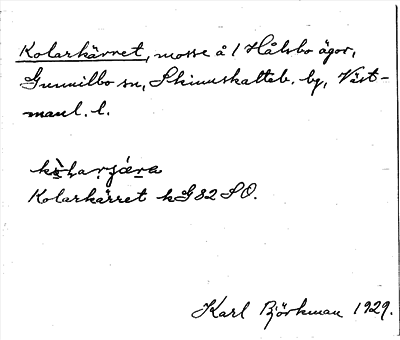 Kolarkärret, mosse å 1 Hålsbo ägor,
Gunnilbo sn, Skinnskatteb. bg, Väst-
manl. l.
Kolarkärret kG 82 SO.
Karl Björkman 1929.